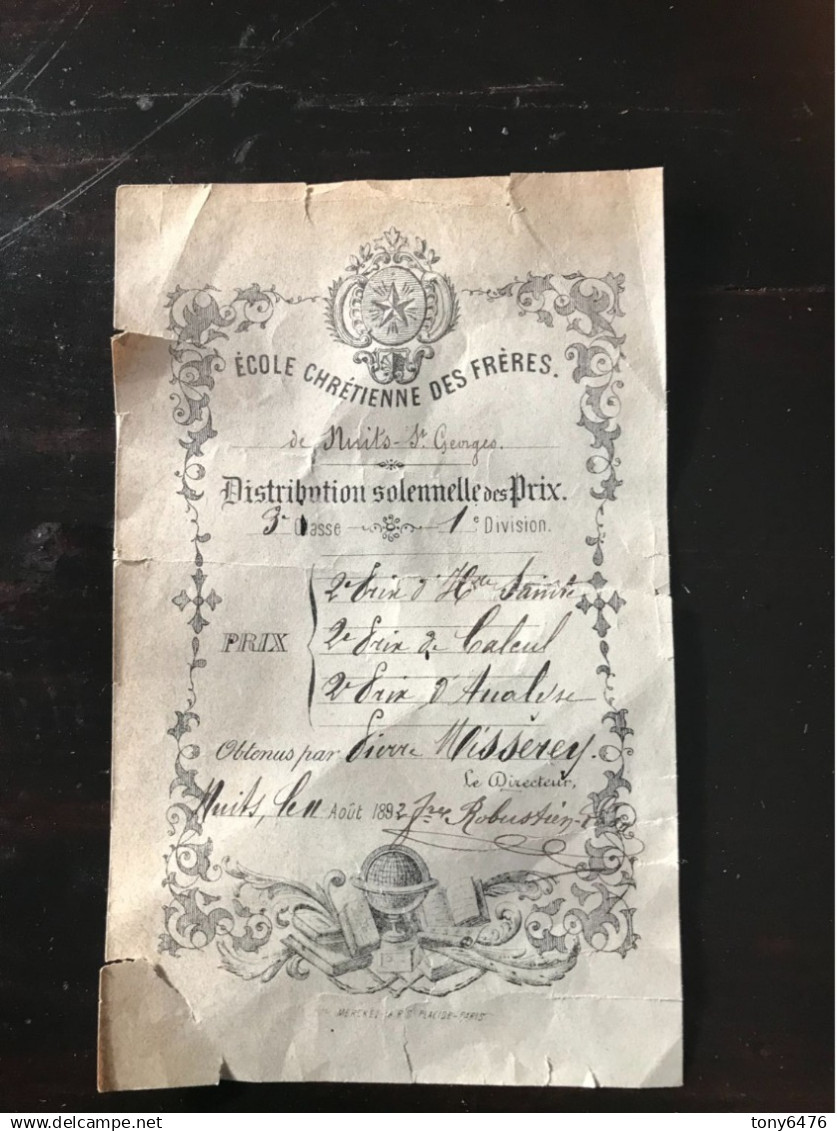 ÉCOLE CHRÉTIENNE DES FRÈRES.
de Nuits-St Georges.
Distribution solennelle des Prix.
3e Classe 1e Division.
PRIX
2e Prix d'Hre Sainte
2e Prix de Calcul
2e Prix d'Analyse
Obtenus par Pierre Misserey.
Le Directeur,
Nuits, le 11 Août 1892 Robustien
PLACIDE-PARIS
tony6476